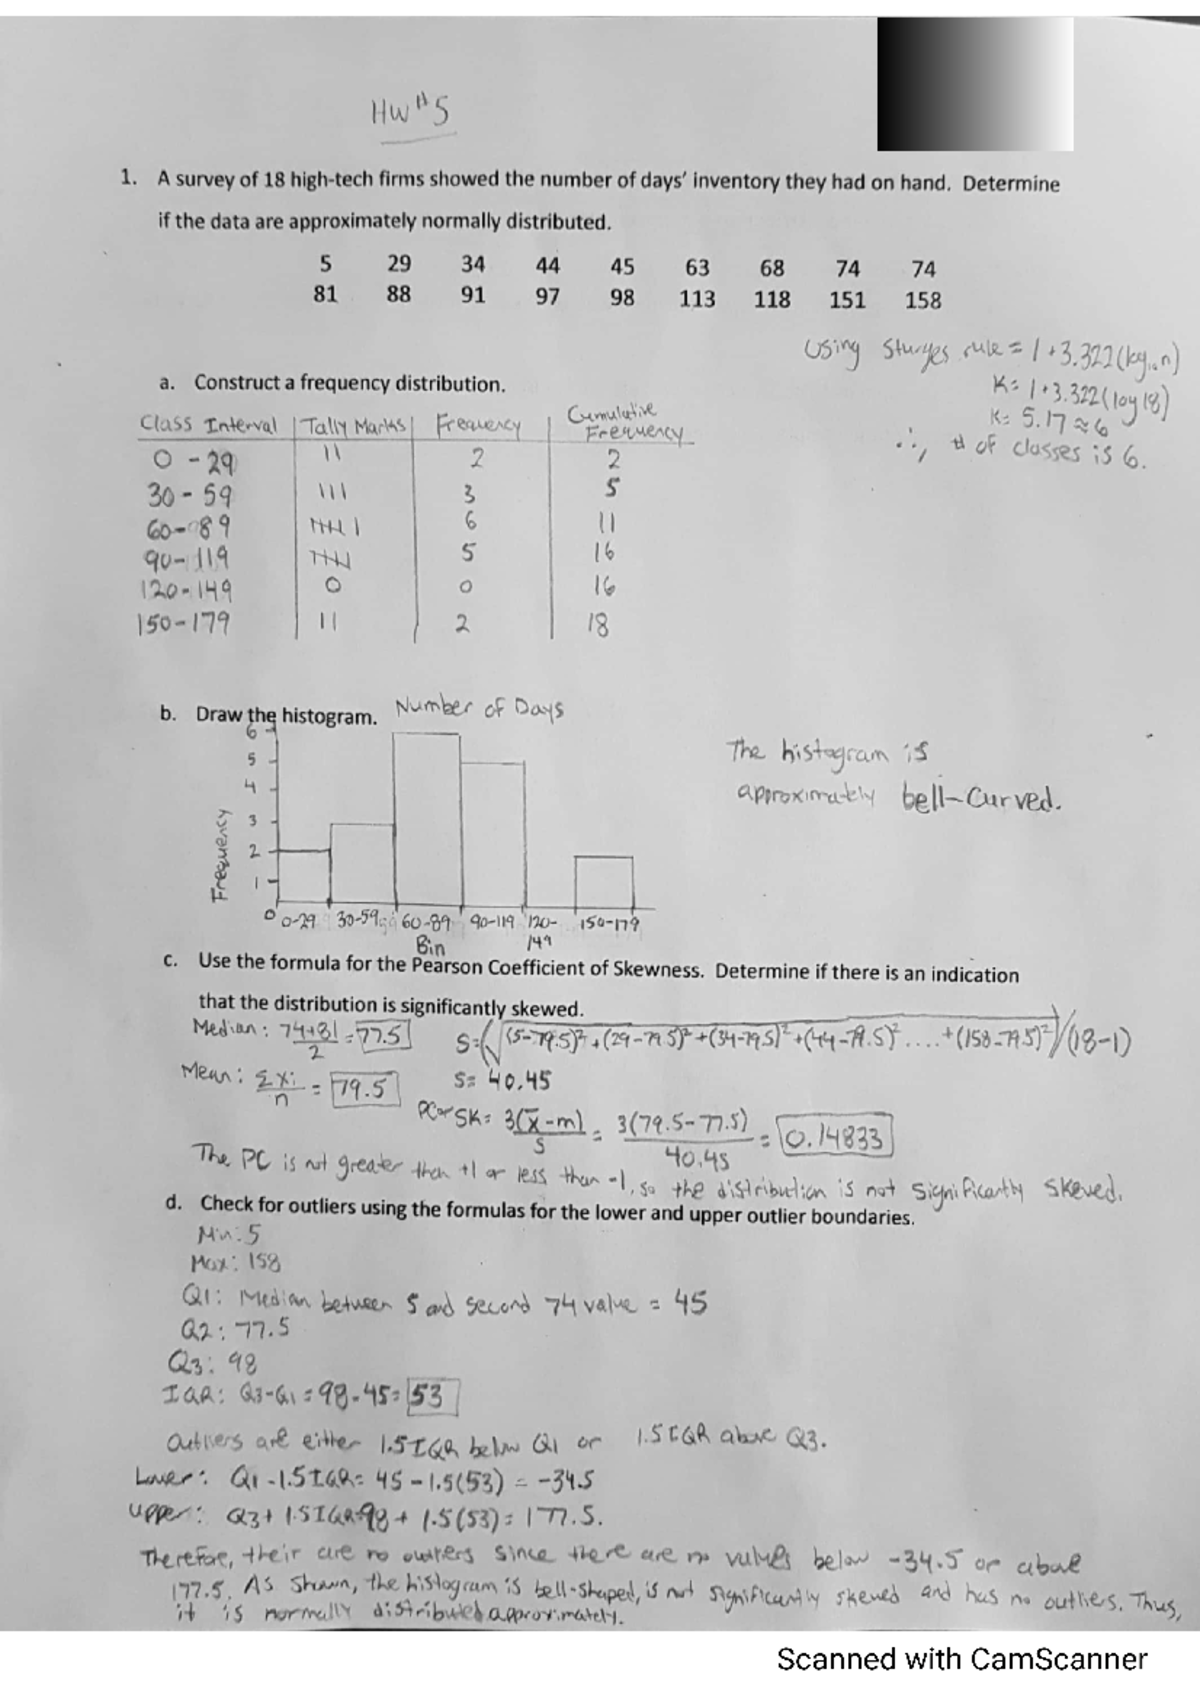 HW #5
1. A survey of 18 high-tech firms showed the number of days' inventory they had on hand. Determine
if the data are approximately normally distributed.
5 29 34 44 45 63 68 74 74
81 88 91 97 98 113 118 151 158
Using Sturges rule = 1+3.322(log₁₀n)
K= 1+3.322(log 18)
K= 5.17 ≈ 6
∴, # of classes is 6.
a. Construct a frequency distribution.
Class Interval | Tally Marks | Frequency | Cumulative Frequency
0 - 29 || 2 2
30 - 59 ||| 3 5
60 - 89 |||| | 6 11
90 - 119 |||| 5 16
120 - 149 0 0 16
150 - 179 || 2 18
b. Draw the histogram. Number of Days
6
5
4
3
2
1
0
Frequency
The histogram is
approximately bell-curved.
0-29 30-59 60-89 90-119 120-149 150-179
Bin
c. Use the formula for the Pearson Coefficient of Skewness. Determine if there is an indication
that the distribution is significantly skewed.
Median: 74+81/2 = 77.5
S=(√(5-79.5)²+(29-79.5)²+(34-79.5)²+(44-79.5)²....+(158-79.5)²)/(18-1)
Mean: Σxi/n = 79.5
S= 40.45
PC or SK= 3(x̄-m)/s = 3(79.5-77.5)/40.45 = 0.14833
The PC is not greater than +1 or less than -1, so the distribution is not significantly skewed.
d. Check for outliers using the formulas for the lower and upper outlier boundaries.
Min: 5
Max: 158
Q1: Median between 5 and second 74 value = 45
Q2: 77.5
Q3: 98
IQR: Q3-Q1 = 98-45= 53
Outliers are either 1.5IQR below Q1 or 1.5IQR above Q3.
Lower: Q1 -1.5IQR= 45 - 1.5(53) = -34.5
Upper: Q3+ 1.5IQR=98 + 1.5(53)= 177.5.
Therefore, their are no outliers since there are no values below -34.5 or above
177.5. As shown, the histogram is bell-shaped, is not significantly skewed and has no outliers. Thus,
it is normally distributed approximately.
Scanned with CamScanner